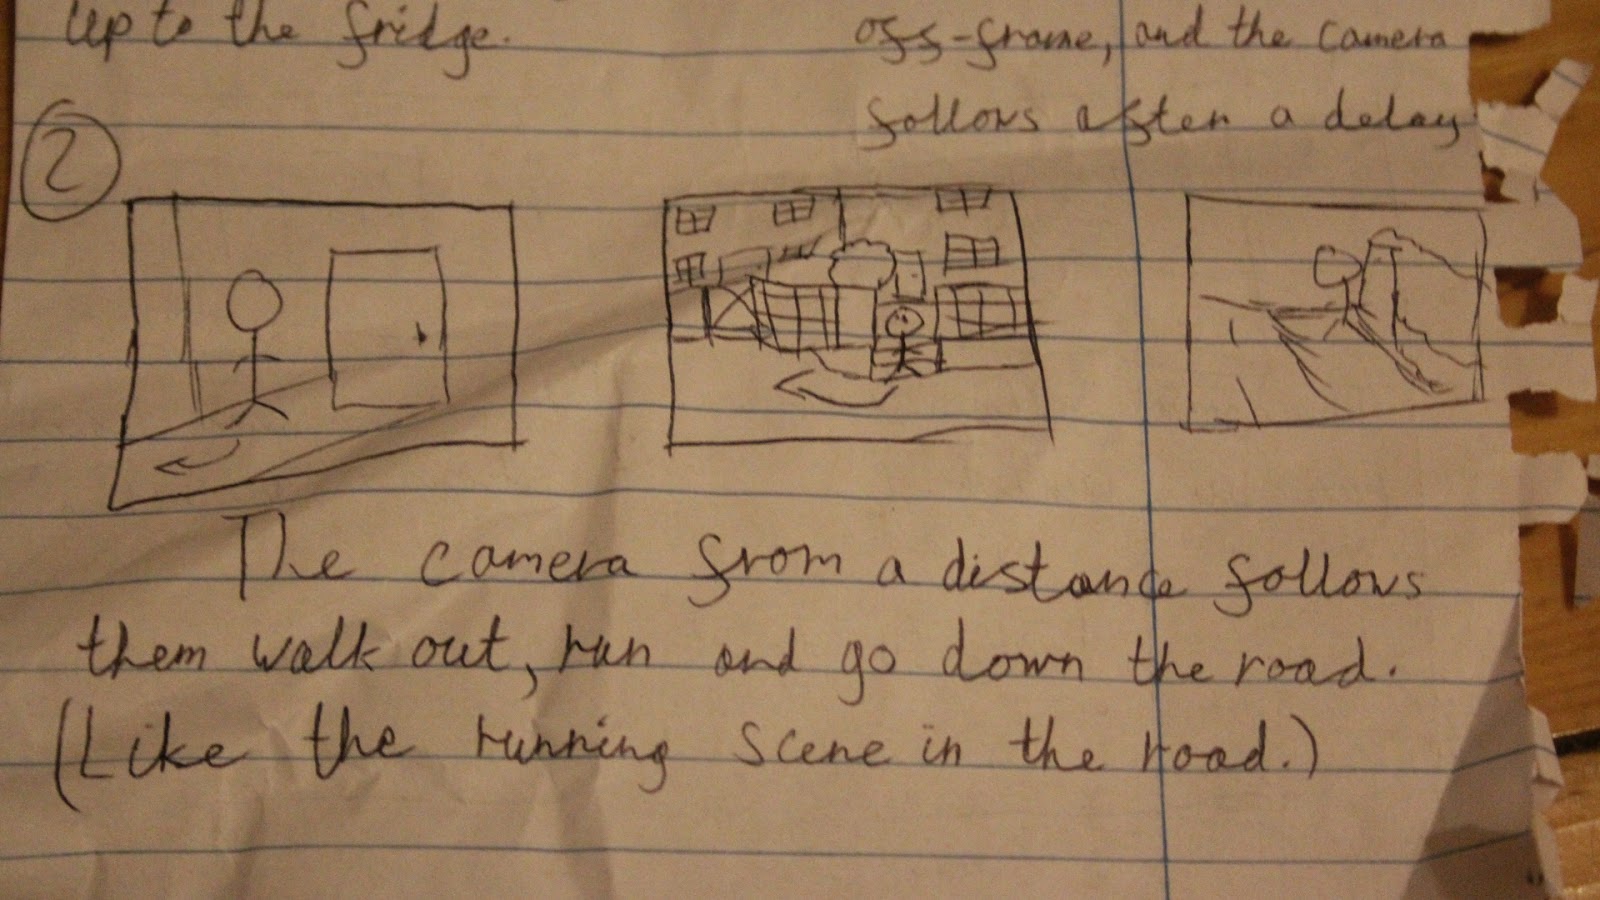 up to the fridge.
off-frame, and the camera
follows after a delay
2
The camera from a distance follows
them walk out, run and go down the road.
(Like the running scene in the road.)